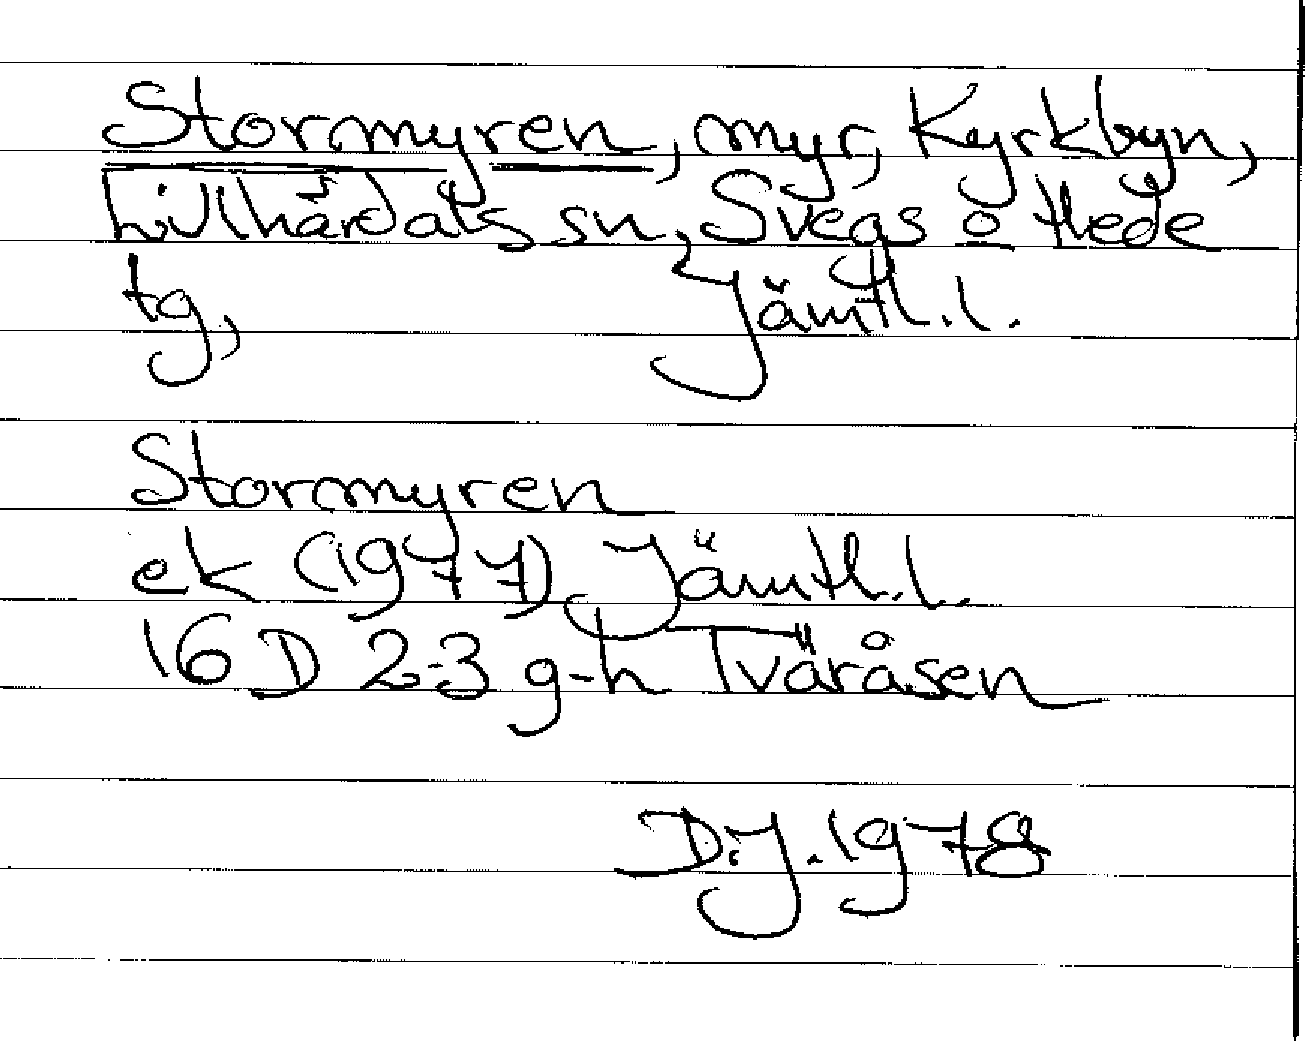 Stormyren, myr, Kyrkbyn,
Lillhärdals sn, Svegs o Hede
tg, Jämtl. l.
Stormyren
ek (1977) Jämtl. l.
16 D 2-3 g-h Tväråsen
D.J. 1978